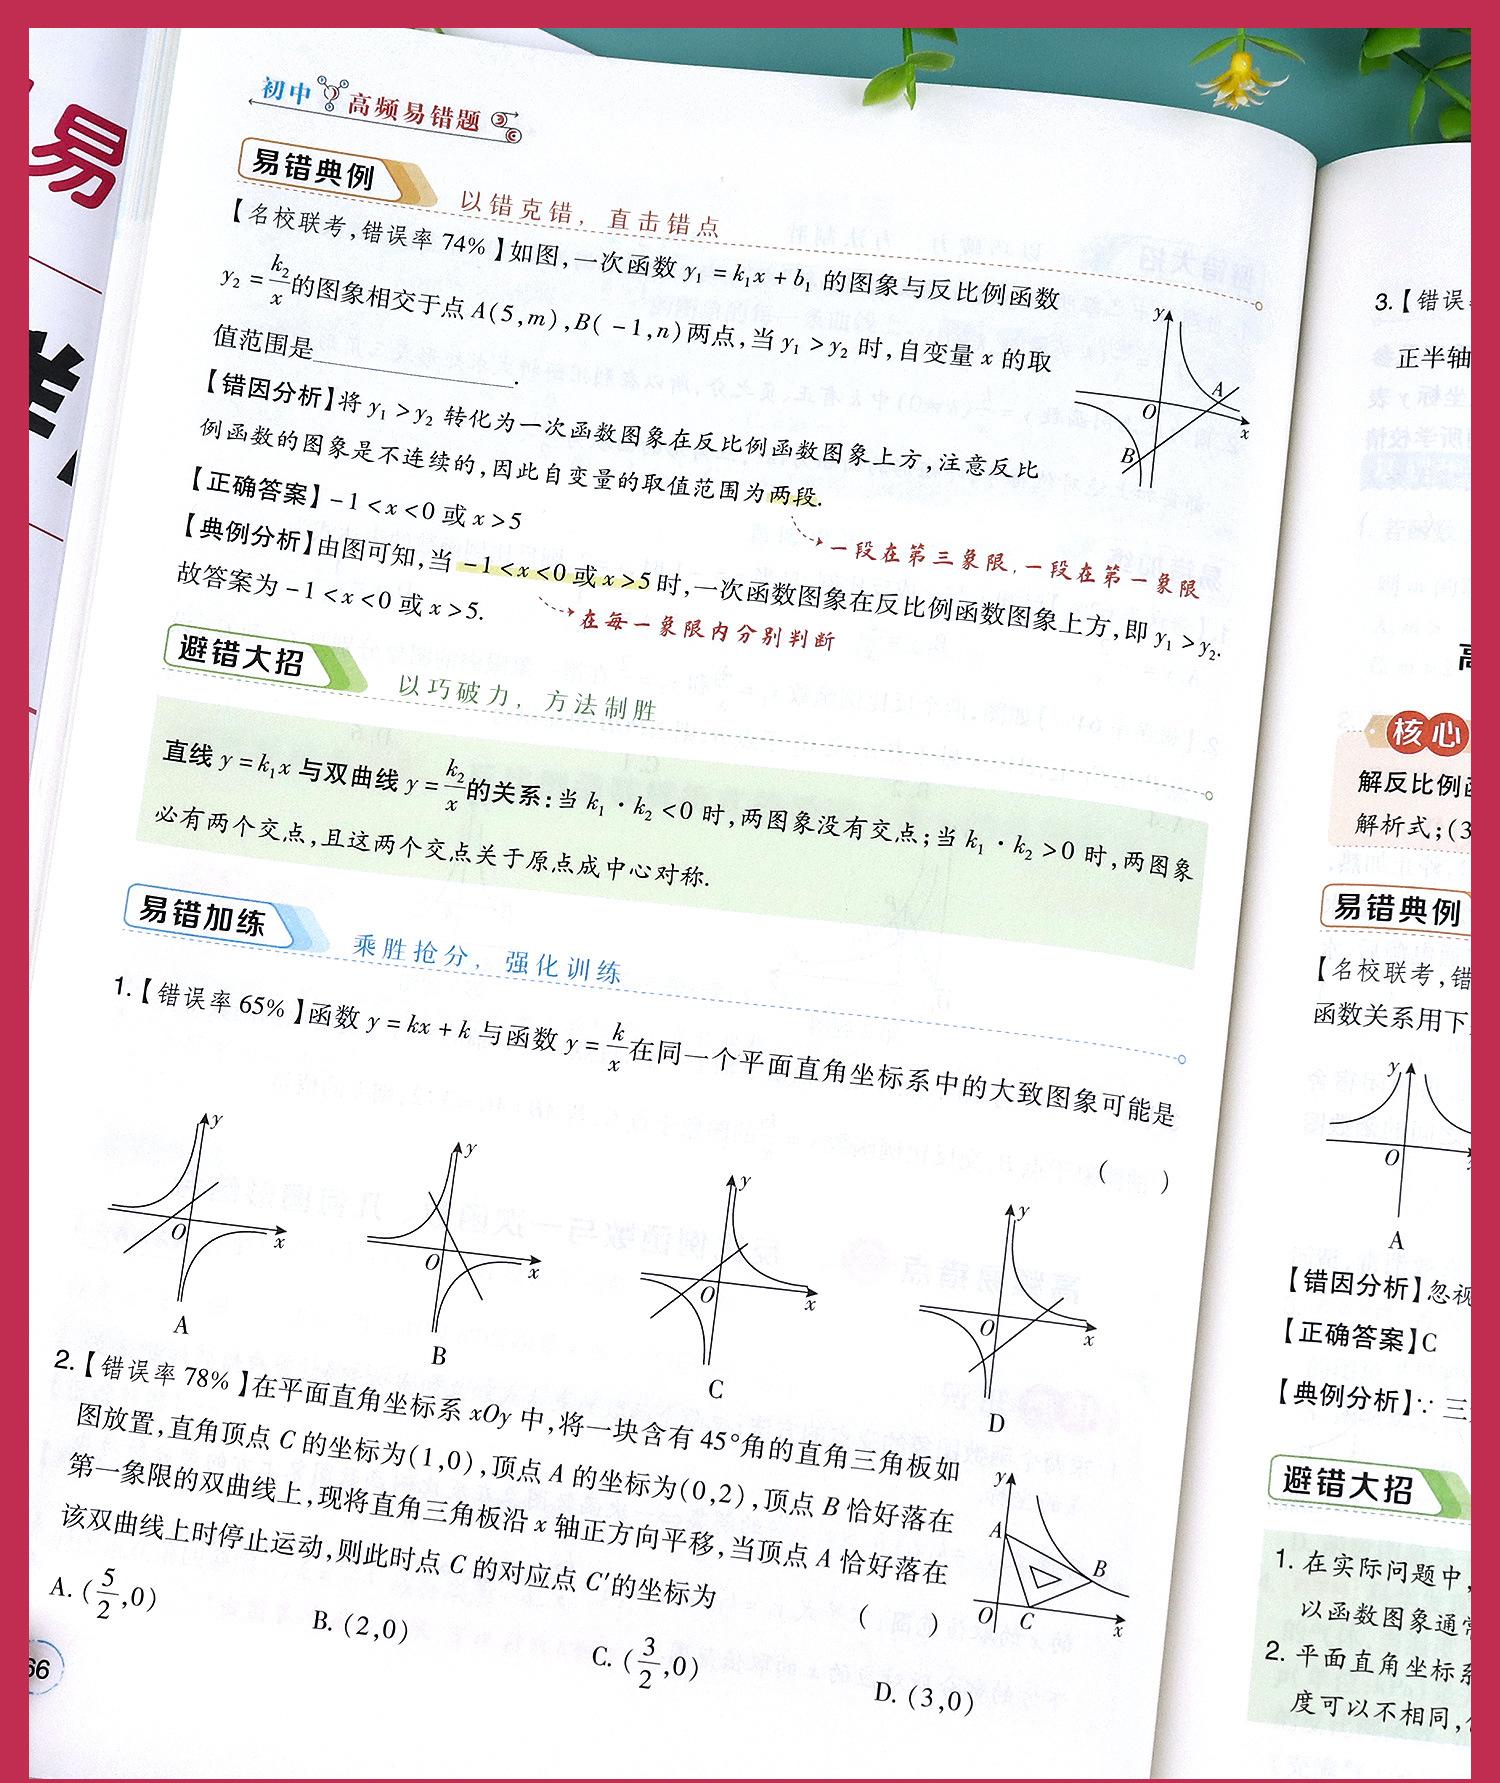 易
初中 高频易错题
易错典例 以错克错，直击错点
【名校联考,错误率 74%】如图,一次函数 y₁ = k₁x + b₁ 的图象与反比例函数
y₂ = k₂/x 的图象相交于点 A(5,m),B( -1,n)两点,当 y₁ >y₂ 时,自变量 x 的取
值范围是____________.
y
A
O
x
B
【错因分析】将 y₁ >y₂ 转化为一次函数图象在反比例函数图象上方,注意反比
例函数的图象是不连续的,因此自变量的取值范围为两段.
【正确答案】 -1 <x <0 或 x >5
一段在第三象限,一段在第一象限
【典例分析】由图可知,当 -1 <x <0 或 x >5 时,一次函数图象在反比例函数图象上方,即 y₁ >y₂.
故答案为 -1 <x <0 或 x >5.
在每一象限内分别判断
避错大招 以巧破力，方法制胜
直线 y = k₁x 与双曲线 y = k₂/x 的关系:当 k₁ · k₂ <0 时,两图象没有交点;当 k₁ · k₂ >0 时,两图象
必有两个交点,且这两个交点关于原点成中心对称.
易错加练 乘胜抢分，强化训练
1.【错误率 65%】函数 y = kx + k 与函数 y = k/x 在同一个平面直角坐标系中的大致图象可能是
( )
y
O
x
A
y
O
x
B
y
O
x
C
y
O
x
D
2.【错误率 78%】在平面直角坐标系 xOy 中,将一块含有 45°角的直角三角板如
图放置,直角顶点 C 的坐标为(1,0),顶点 A 的坐标为(0,2),顶点 B 恰好落在
第一象限的双曲线上,现将直角三角板沿 x 轴正方向平移,当顶点 A 恰好落在
该双曲线上时停止运动,则此时点 C 的对应点 C′的坐标为 ( )
y
A
B
O
C
x
A. (5/2,0)
B. (2,0)
C. (3/2,0)
D. (3,0)
66
3.【错误
正半轴
核心
解反比例函
解析式;(3
易错典例
【名校联考,错
函数关系用下
y
O
A
【错因分析】忽视
【正确答案】C
【典例分析】∵ 三
避错大招
1. 在实际问题中,
以函数图象通常
2. 平面直角坐标系
度可以不相同,